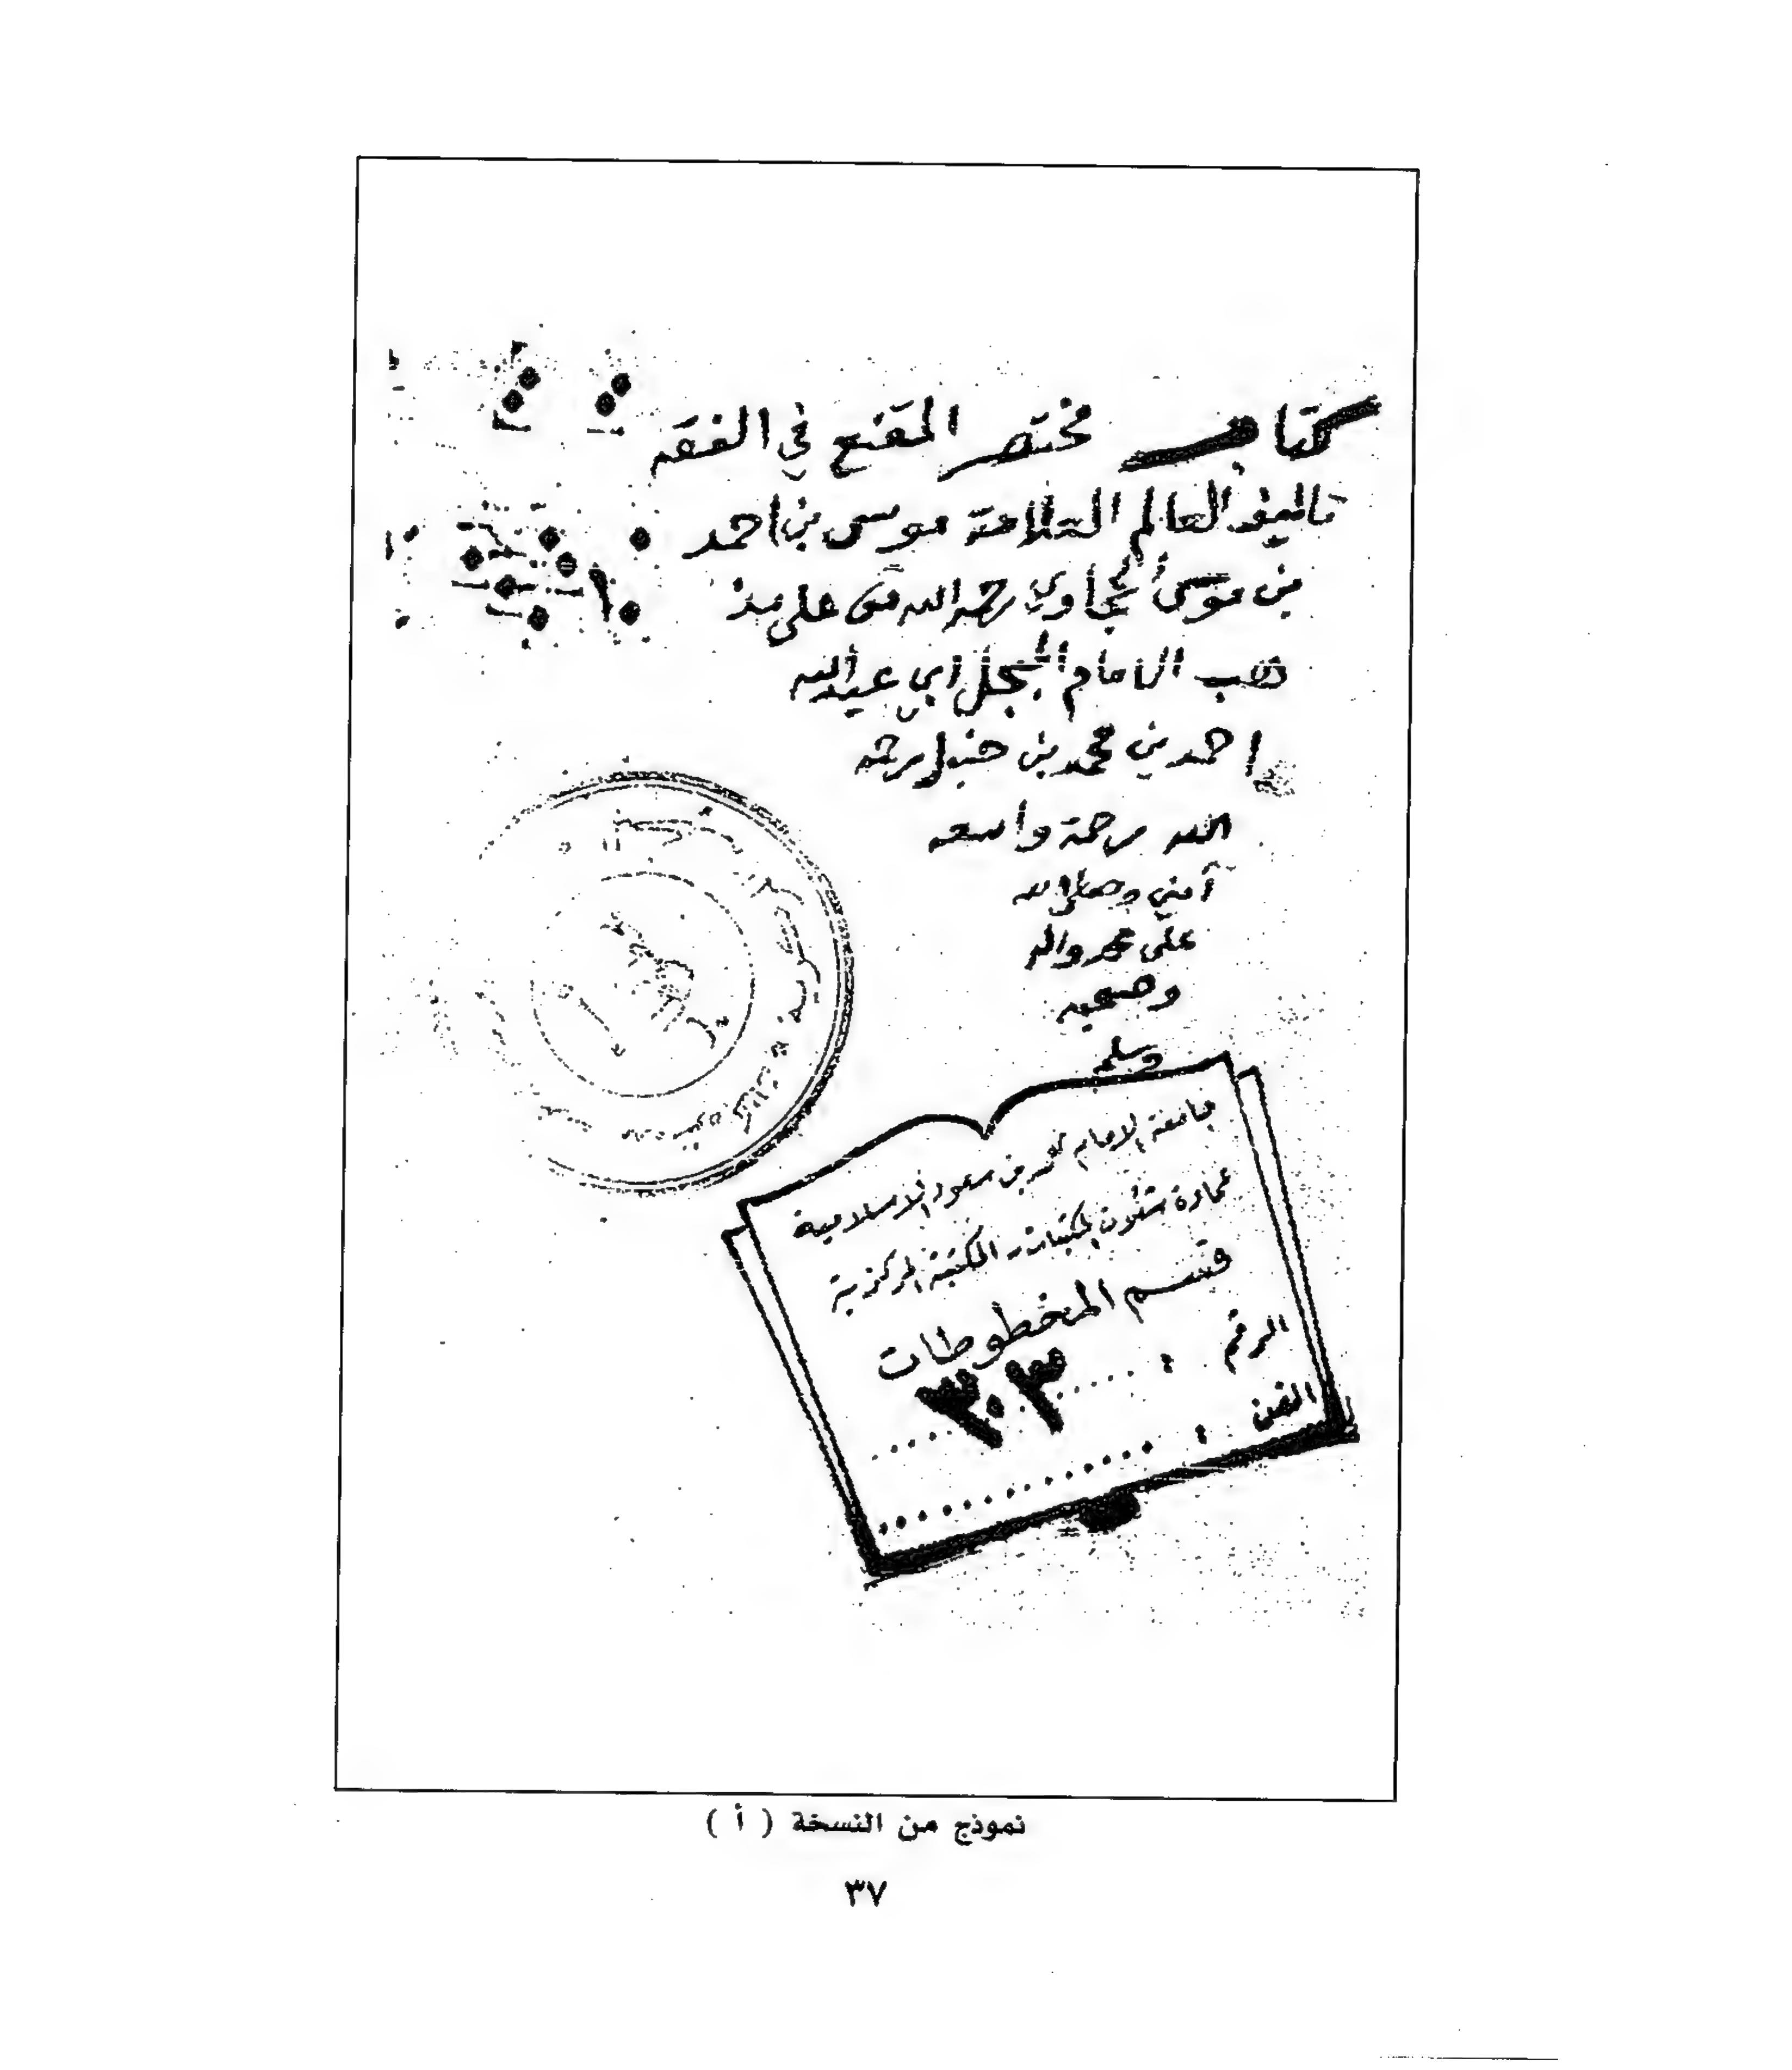 كتاب مختصر المقنع في الفقه
تاليف العالم العلامة موسى بن احمد
بن موسى الحجاوي رحمه الله على مذ
هب الامام المبجل ابي عبد الله
احمد بن محمد بن حنبل رحمه
الله رحمة واسعه
آمين وصلى الله
على محمد واله
وصحبه
وسلم
جامعة الإمام محمد بن سعود الإسلامية
عمادة شئون المكتبات - المكتبة المركزية
قسم المخطوطات
الرقم : ٣٠٣
الفن :
نموذج من النسخة ( أ )
٣٧